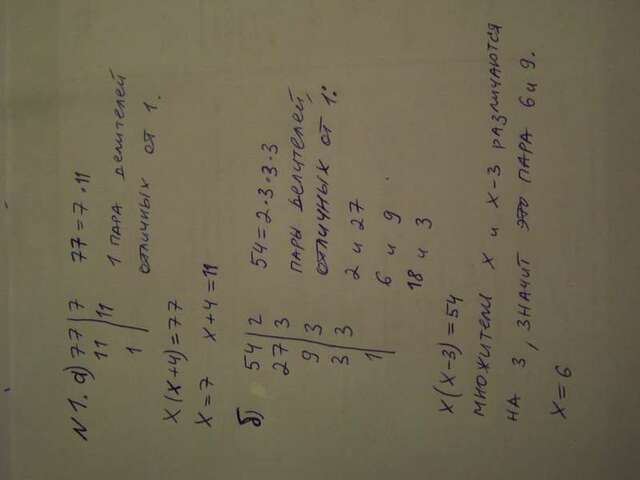 N1. а) 77 | 7   77 = 7 · 11
11 | 11   1 ПАРА ДЕЛИТЕЛЕЙ
1 |   ОТЛИЧНЫХ ОТ 1.
X(X+4)=77
X=7   X+4=11
б) 54 | 2   54=2·3·3·3
27 | 3   ПАРЫ ДЕЛИТЕЛЕЙ,
9 | 3   ОТЛИЧНЫХ ОТ 1:
3 | 3   2 и 27
1 |   6 и 9
18 и 3
X(X-3)=54
МНОЖИТЕЛИ X и X-3 РАЗЛИЧАЮТСЯ
НА 3, ЗНАЧИТ ЭТО ПАРА 6 и 9.
X=6